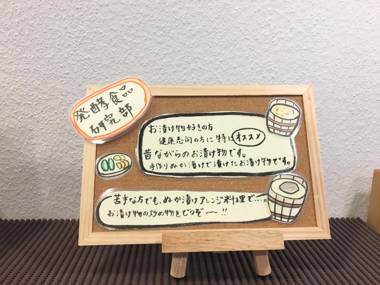 発酵食品
研究部
お漬け物好きの方
健康志向の方に特にオススメ
昔ながらのお漬け物です。
手作りぬか漬けで漬けたお漬け物です。
苦手な方でも、ぬか漬けアレンジ料理で…。
お漬け物の炒め物をどうぞ〜!!